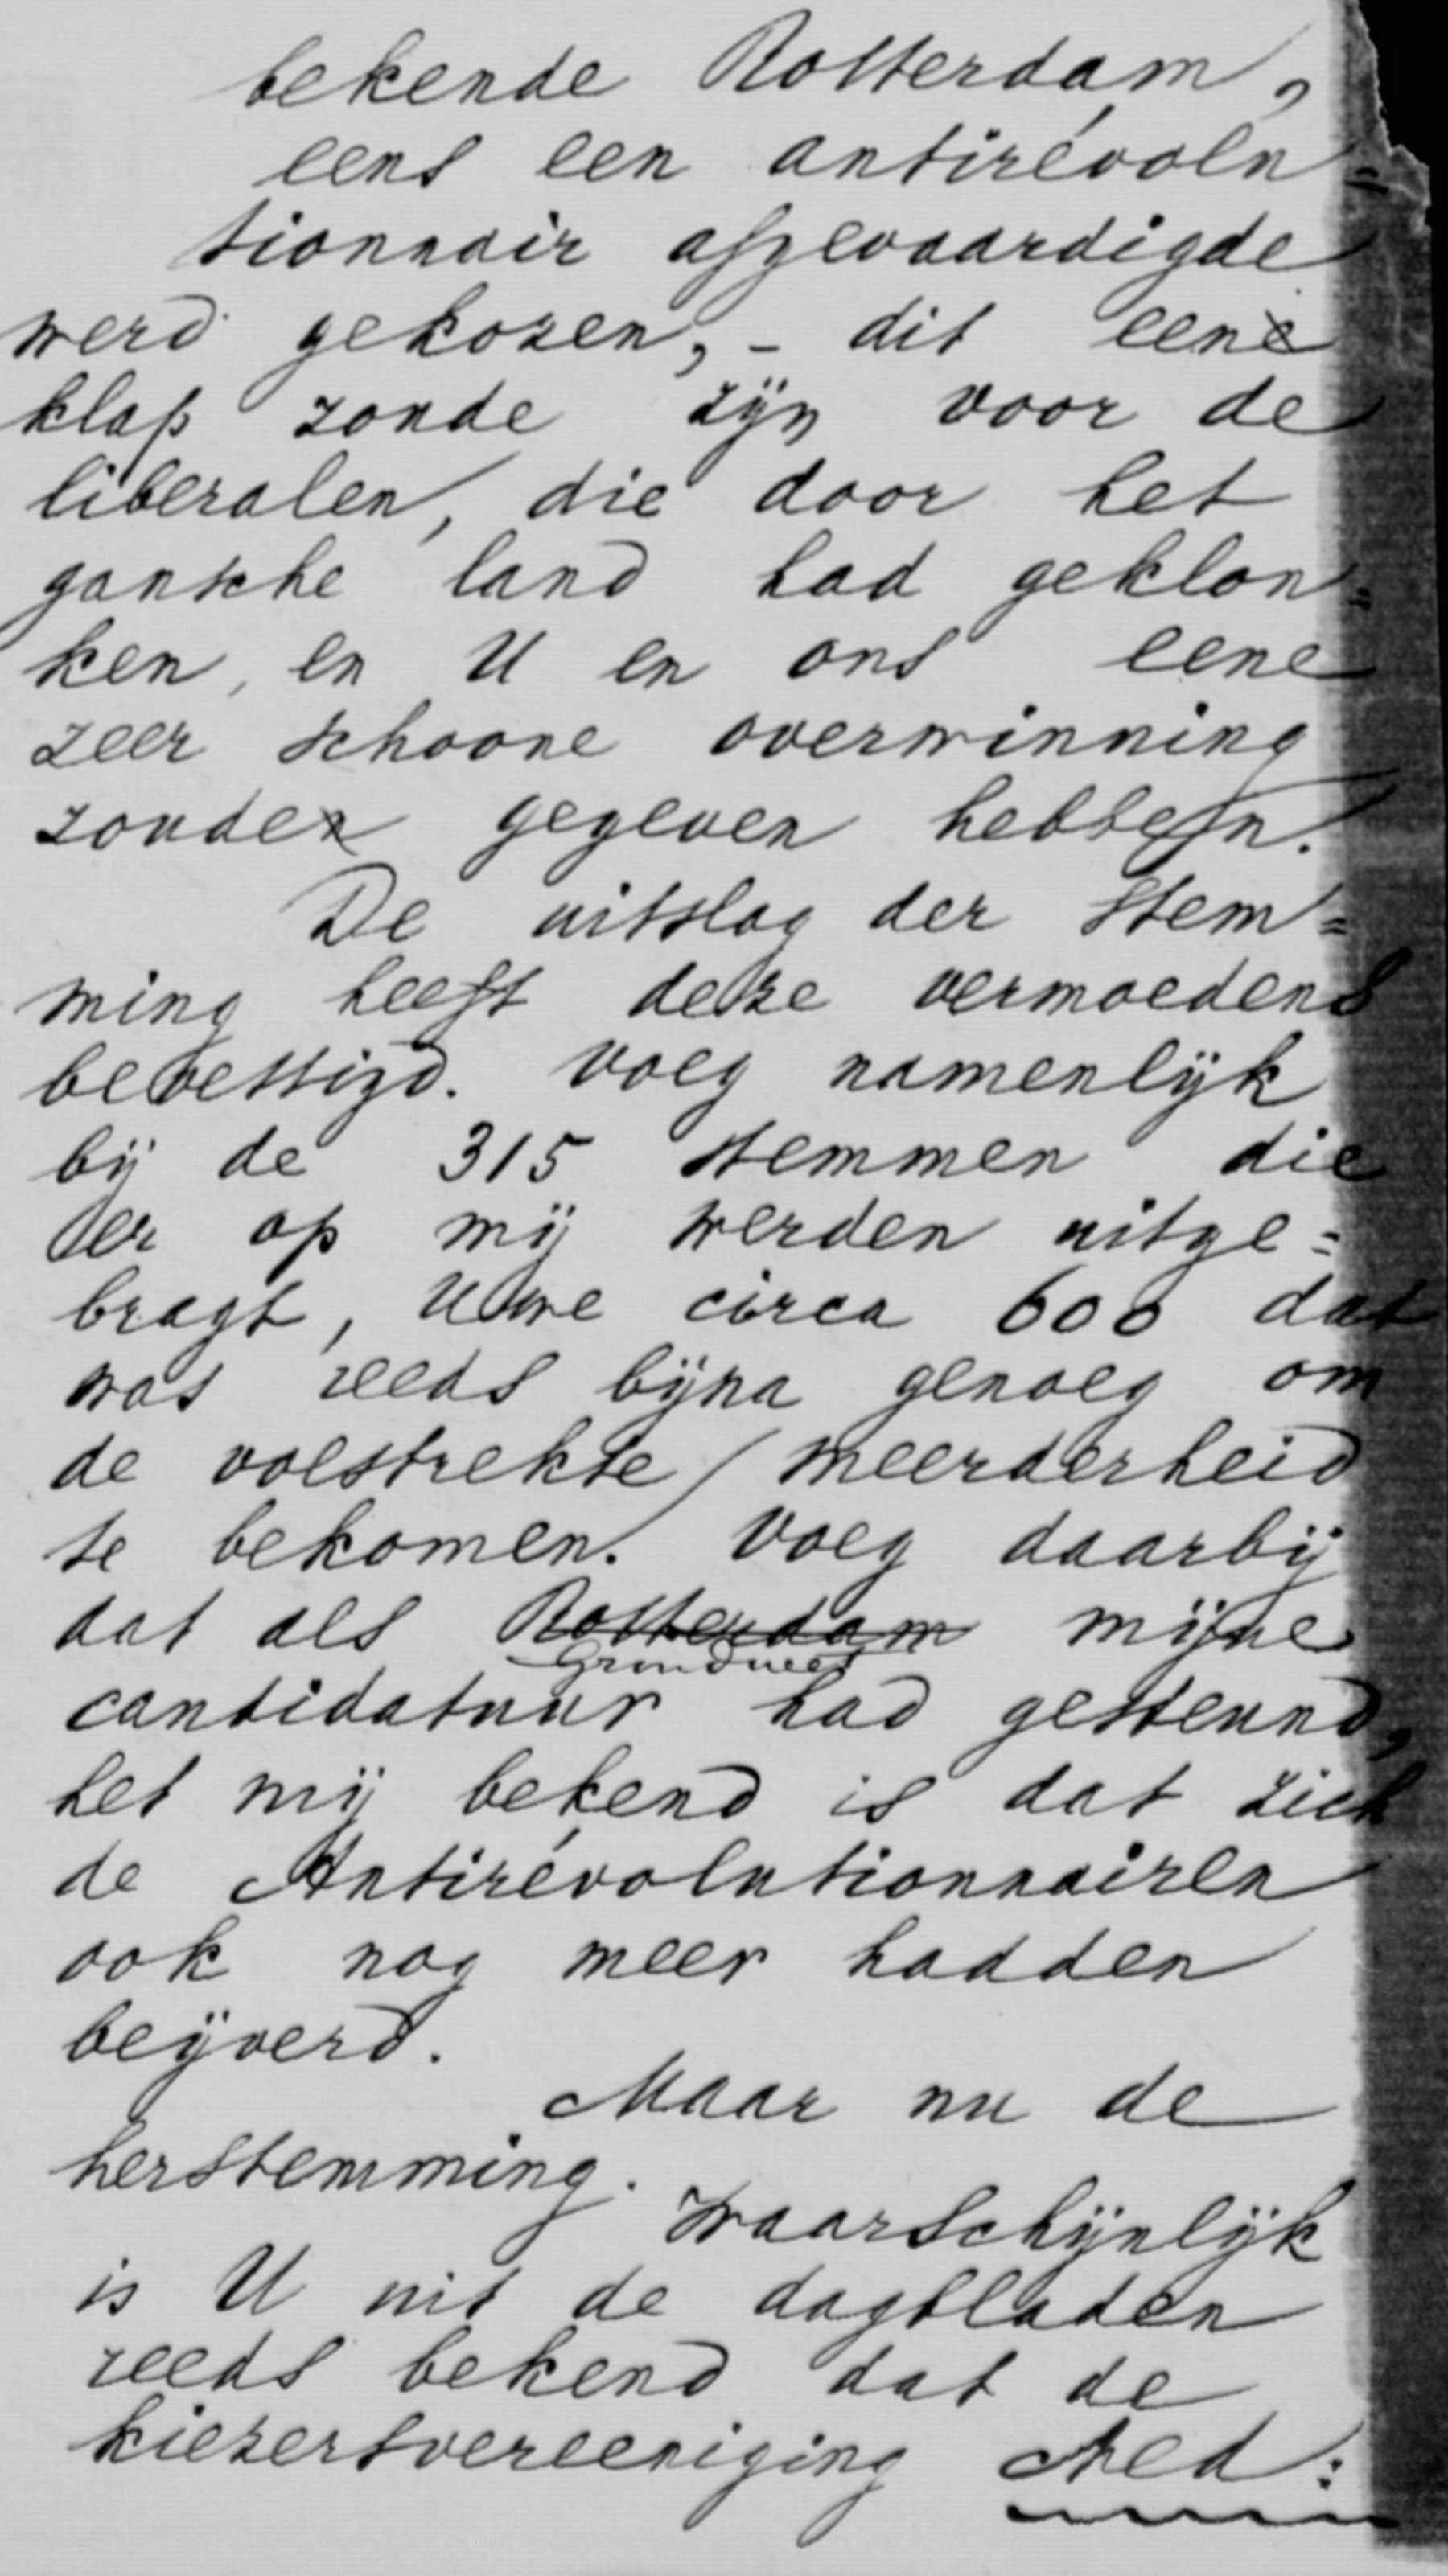 bekende Rotterdam,
eens een antirévolu=
tionnair afgevaardigde
werd gekozen, - dit eene
klap zoude zijn voor de
liberalen, die door het
gansche land had geklon=
ken, en U en ons eene
zeer schoone overwinning
zouden gegeven hebben.
De uitslag der stem=
ming heeft deze vermoedens
bevestigd. Voeg namenlijk
bij de 315 stemmen die
er op mij werden uitge=
bragt, Uwe circa 600 dat
was reeds bijna genoeg om
de volstrekte meerderheid
te bekomen. Voeg daarbij
dat als Rotterdam mijne
Grondwet
candidatuur had gesteund,
het mij bekend is dat zich
de Antirévolutionnairen
ook nog meer hadden
beijverd.
Maar nu de
herstemming.
Waarschijnlijk
is U uit de dagbladen
reeds bekend dat de
kiezersvereeniging Ned: